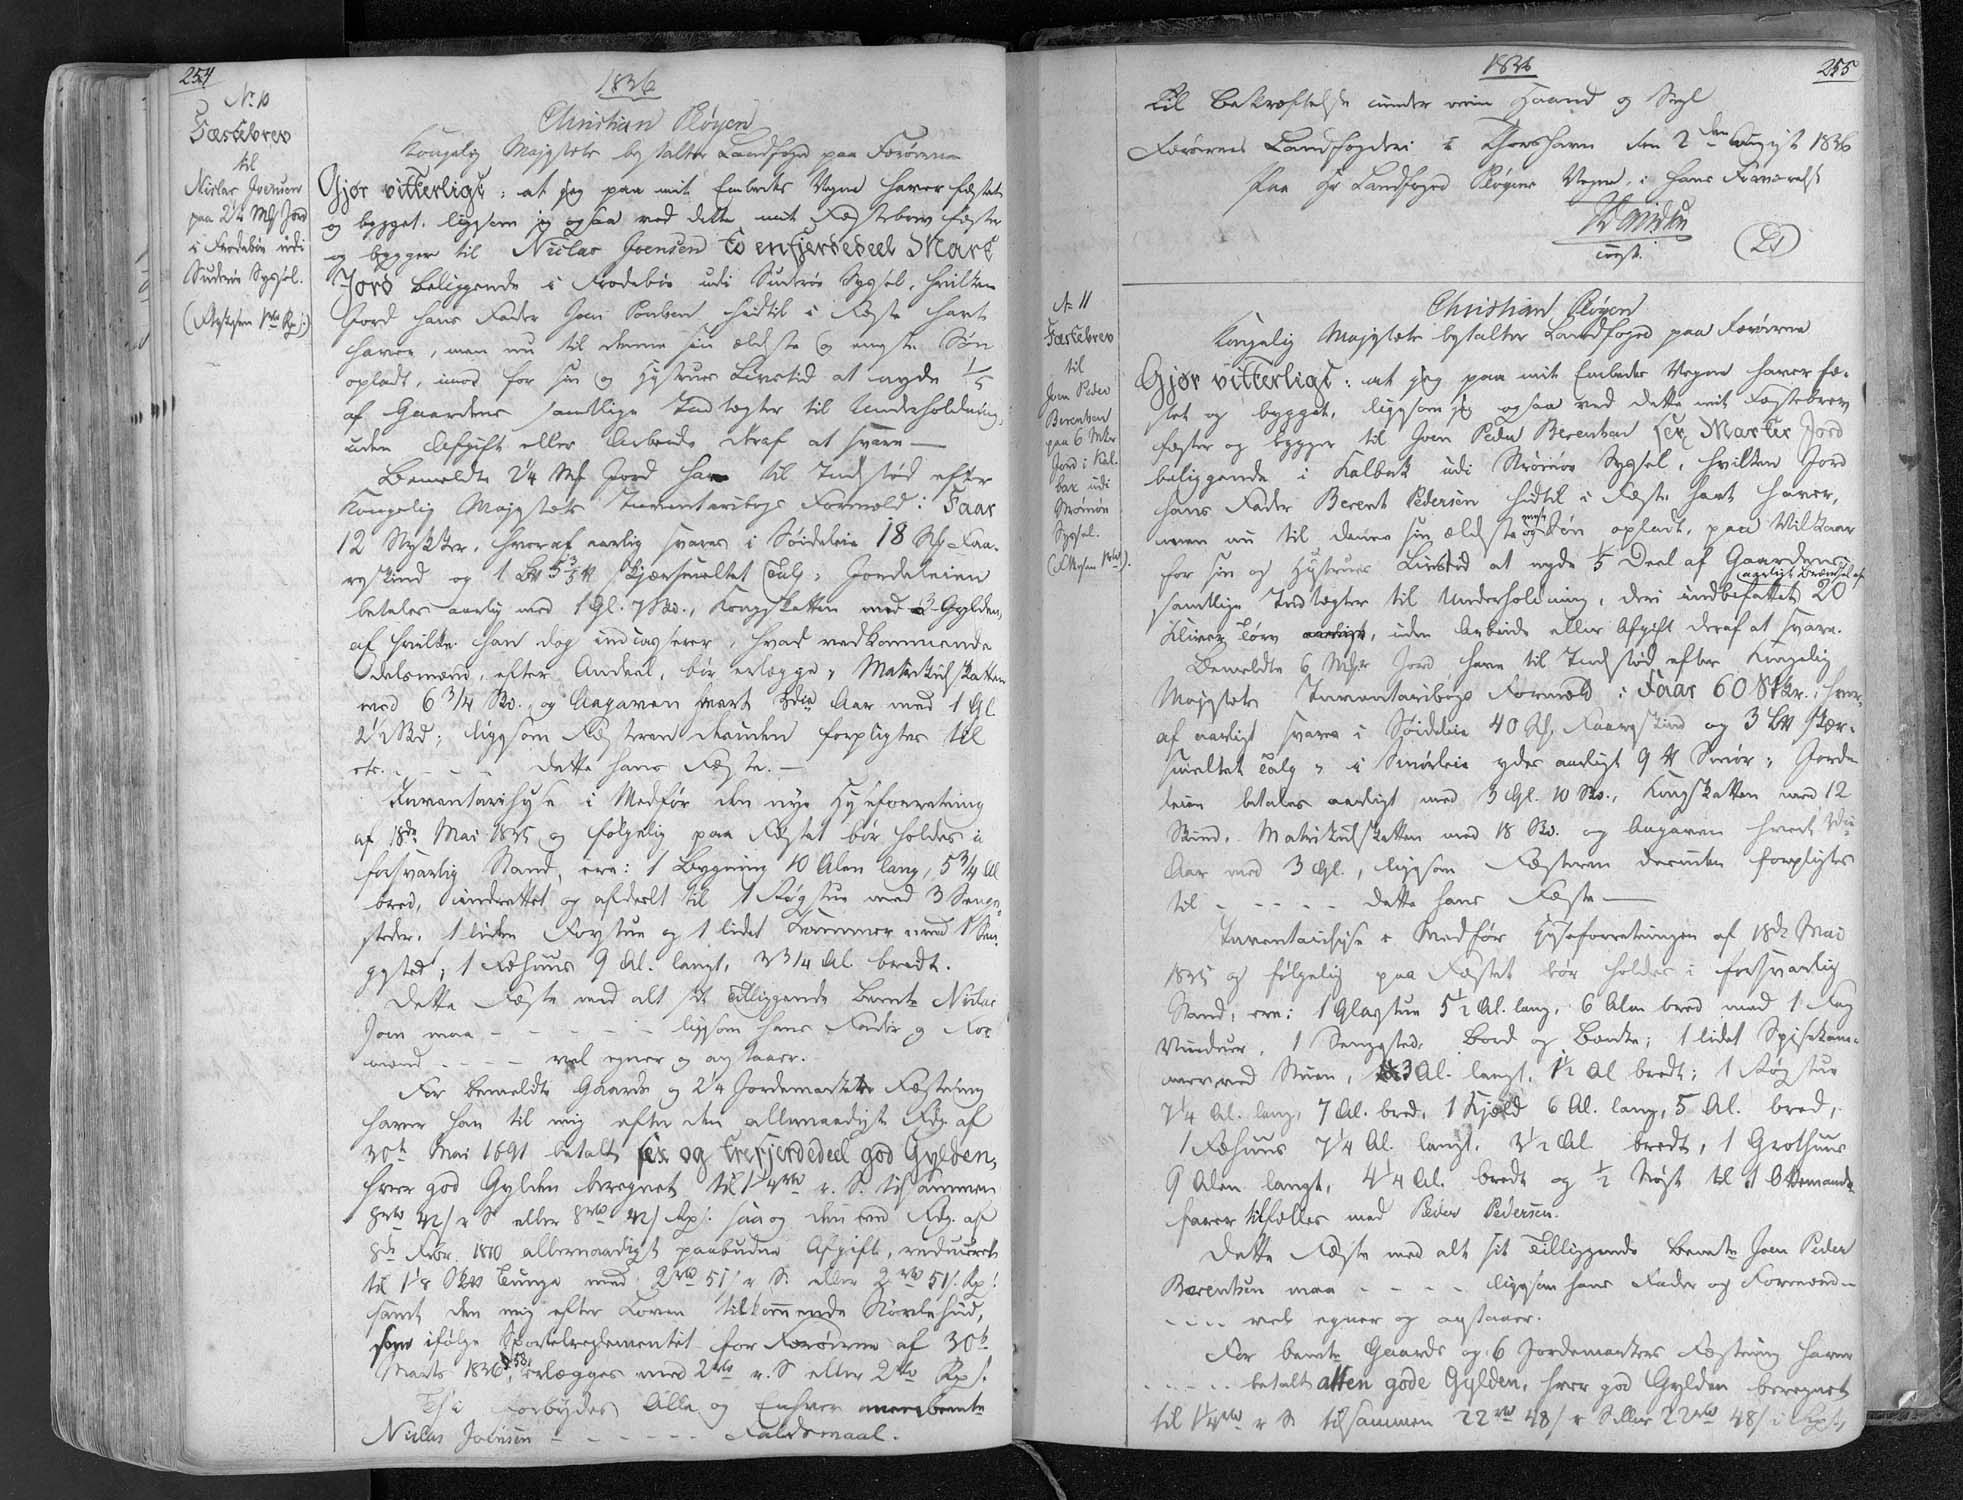 254
1836
No 10
Fæstebrev
til
Niclas Joensen
paa 2¼ Mk Jord
i Frodebøe udi
Suderøe Syssel.
Christian Pløyen
Kongelig Majestæts bestalter Landfoged paa Færøerne
Gjør vitterligt: at jeg paa mit Embeds Vegne haver fæstet
og bygget, ligesom jeg ogsaa ved dette mit Fæstebrev fæster
og bygger til Niclas Joensen to en fjerdedeel Mark
Jord beliggende i Frodebøe udi Suderøe Syssel, hvilken
Jord hans Fader Joen Poulsen hidtil i Fæste havt
haver, men nu til denne sin ældste og eneste Søn
opladt, imod for sin og Hustrues Livstid at nyde 1/5
af Gaardens samtlige Indtægter til Underholdning,
uden Afgift eller Arbeide deraf at svare —
Bemeldte 2¼ Mk Jord har til Indstød efter
Kongelig Majestæts Inventariibogs Formeld: Faar
12 Stykker, hvoraf aarlig svares i Søideleie 18 Faa-
reskind og 1 skjærsmeltet Talg, Jordeleien
betales aarlig med 1 Gl. 7 Sk., Kongskatten med 3 Gylden,
af hvilke han dog indcasserer, hvad vedkommende
Odelsmænd, efter Andeel, bør erlægge, Matrikulskatten
med 6 3/4 Sk. og Aagaven hvert 3die Aar med 1 Gl.
2½ Sk; ligesom Fæsteren desuden forpligtes til
etc. - - - - dette hans Fæste. —
Inventariihuse i Medfør den nye Huseforretning
af 18de Mai 1835 og følgelig paa Fæstet bør holdes i
forsvarlig Stand, ere: 1 Bygning 10 Alen lang, 5 3/4 Al
bred, indrettet og afdeelt til 1 Røgstue med 3 Senge-
steder, 1 liden Forstue og 1 lidet Kammer med 1 Sen-
gested; 1 Fæhuus 9 Al. langt, 3 3/4 Al. bredt.
Dette Fæste med alt sit Tilliggende bemte Niclas
Joen maa - - - - - ligesom hans Fader og For-
mænd - - - vel egner og anstaaer.
For bemeldte Gaards og 2¼ Jordemarkers Fæstning
haver han til mig efter den allernaadigste Fdg. af
30te Mai 1691 betalt sex og trefjerdedeel god Gylden,
hver god Gylden beregnet til 1¼ rbd r. S. tilsammen
8 rbd 42 s r S eller 8 rbd 42 s Rp s. saa og den ved Fdg. af
8de Febr. 1810 allernaadigst paabudne Afgift, reduceret
til 1 1/8 Tønde med 2 rbd 51 s r S. eller 2 rbd 51 s. Rp s.
samt den mig efter Loven tilkommende Størlehud,
som ifølge Sportelreglementet for Færøerne af 30te
Marts 1836 § 58, erlægges med 2 rbd r. S eller 2 rbd Rp s.
Thi forbydes Alle og Enhver bemte
Niclas Joensen - - - - - - Faldsmaal.
1836
255
Til Bekræftelse under min Haand og Segl
Færøernes Landfogderi i Thorshavn den 2den August 1836
Paa Hr Landfoged Pløyens Vegne, i hans Fraværelse
const.
LS
No 11
Fæstebrev
til
Joen Peder
Berentsen
paa 6 Mkr
Jord i Kal-
bak udi
Strømøe
Syssel.
Christian Pløyen
Kongelig Majestæts bestalter Landfoged paa Færøerne
Gjør vitterligt: at jeg paa mit Embeds Vegne haver fæ-
stet og bygget, ligesom jeg ogsaa ved dette mit Fæstebrev
fæster og bygger til Joen Peder Berentsen sex Marker Jord
beliggende i Kalbak udi Strømøe Syssel, hvilken Jord
hans Fader Berent Pedersen hidtil i Fæste havt haver,
men nu til denne sin ældste og eneste Søn opladt, paa Vilkaar
for sin og Hustrues Livstid at nyde 1/5 Deel af Gaardens
samtlige Indtægter til Underholdning, deri indbefattet aarligt Brændsel af 20
Kliver Tørv aarligt, uden Arbeide eller Afgift deraf at svare.
Bemeldte 6 Mkr Jord have til Indstød efter Kongelig
Majestæts Inventariibogs Formeld: Faar 60 Stkr., hvor-
af aarligt svares i Søideleie 40 Faareskind og 3 skær-
smeltet Talg, i Smørleie ydes aarligt 9 Smør, Jorde
leien betales aarligt med 3 Gl. 10 Sk., Kongskatten med 12
Skind, Matrikulskatten med 18 Sk. og Aagaven hvert 3die
Aar med 3 Gl., ligesom Fæsteren desuden forpligtes
til - - - - - dette hans Fæste —
Inventariihuse i Medfør Huseforretningen af 18de Mai
1835 og følgelig paa Fæstet bør holdes i forsvarlig
Stand, ere: 1 Glasstue 5½ Al. lang, 6 Alen bred med 1 Fag
Vinduer, 1 Sengested, Bord og Bænke; 1 lidet Spisekam-
mer ved Stuen, 3 Al. langt, 1½ Al bredt; 1 Røgstue
7¼ Al. lang, 7 Al. bred, 1 Hjald 6 Al. lang, 5 Al. bred,
1 Fæhuus 7¼ Al. langt, 3½ Al bredt, 1 Grothuus
9 Alen langt, 4¼ Al. bredt og ½ Nøst til 1 Ottemands-
farer tilfælles med Peder Pedersen.
Dette Fæste med alt sit Tilliggende bemte Joen Peder
Berentsen maa - - - - ligesom hans Fader og Formænd -
- - - vel egner og anstaaer.
For bemte Gaards og 6 Jordemarkers Fæstning haver
- - - - - betalt atten gode Gylden, hver god Gylden beregnet
til 1¼ rbd r S. tilsammen 22 rbd 48 s r S eller 22 rbd 48 s i Rp s,